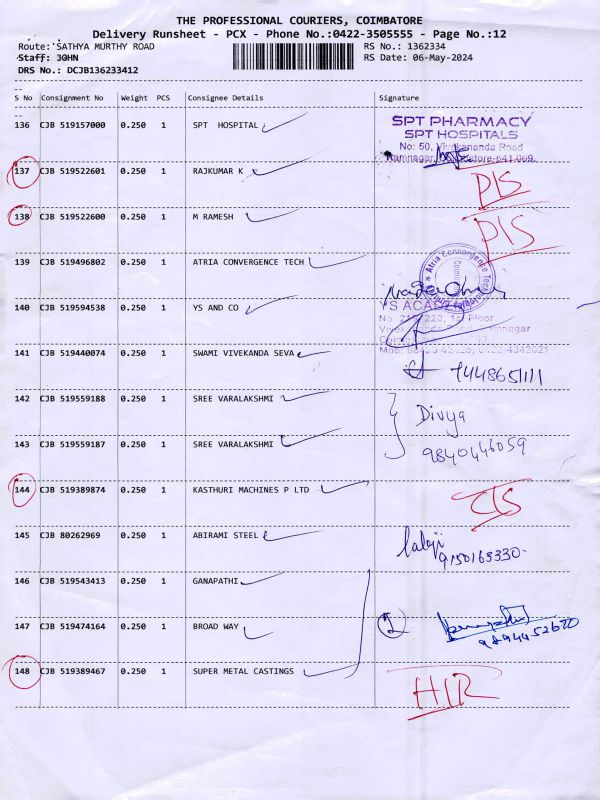 THE PROFESSIONAL COURIERS, COIMBATORE
Delivery Runsheet - PCX - Phone No.:0422-3505555 - Page No.:12
Route: SATHYA MURTHY ROAD RS No.: 1362334
Staff: JOHN RS Date: 06-May-2024
DRS No.: DCJB136233412
S No Consignment No Weight PCS Consignee Details Signature
136 CJB 519157000 0.250 1 SPT HOSPITAL
SPT PHARMACY
SPT HOSPITALS
No: 50, Vivekananda Road
Ramnagar,
137 CJB 519522601 0.250 1 RAJKUMAR K
138 CJB 519522600 0.250 1 M RAMESH
139 CJB 519496802 0.250 1 ATRIA CONVERGENCE TECH
Atria Convergence Tech
140 CJB 519594538 0.250 1 YS AND CO
YS ACADEMY
141 CJB 519440074 0.250 1 SWAMI VIVEKANDA SEVA
142 CJB 519559188 0.250 1 SREE VARALAKSHMI Divya
143 CJB 519559187 0.250 1 SREE VARALAKSHMI 9840446059
144 CJB 519389874 0.250 1 KASTHURI MACHINES P LTD
145 CJB 80262969 0.250 1 ABIRAMI STEEL
146 CJB 519543413 0.250 1 GANAPATHI
147 CJB 519474164 0.250 1 BROAD WAY
9894452670
148 CJB 519389467 0.250 1 SUPER METAL CASTINGS